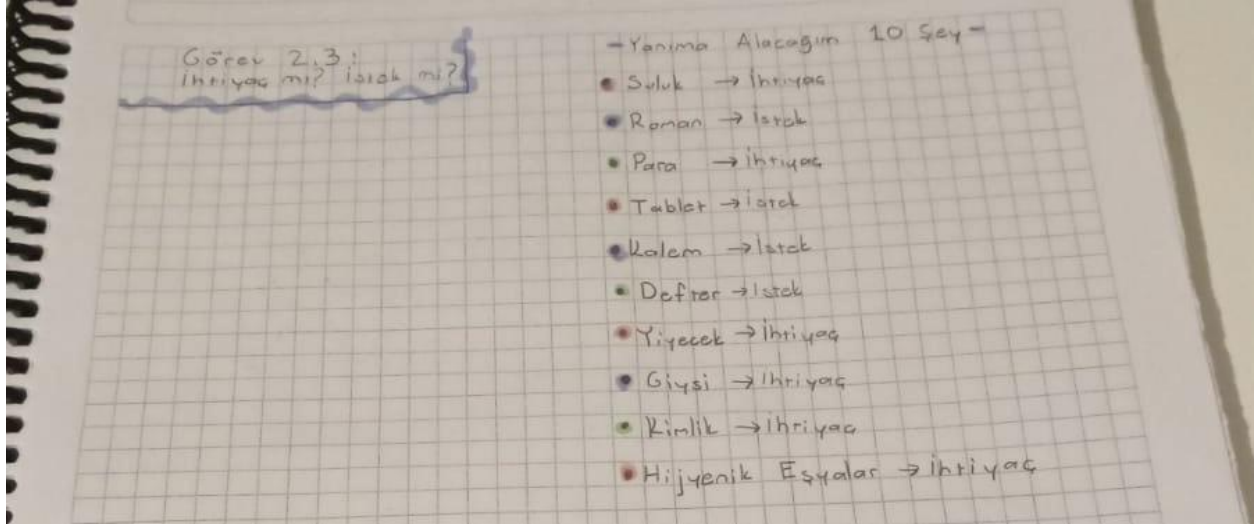 Görev 2.3:
ihtiyaç mı? istek mi?
-Yanıma Alacağım 10 Şey-
• Suluk → İhtiyaç
• Roman → İstek
• Para → ihtiyaç
• Tablet → istek
• Kalem → İstek
• Defter → İstek
• Yiyecek → İhtiyaç
• Giysi → İhtiyaç
• Kimlik → ihtiyaç
• Hijyenik Eşyalar → ihtiyaç